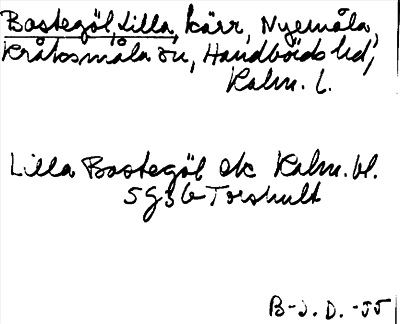 Bastegöl, Lilla, kärr, Nyemåla,
Kråksmåla sn, Handbörds hd,
Kalm. l.
Lilla Bastegöl ek Kalm. bl.
5G3b Torshult
B-J. D. -55